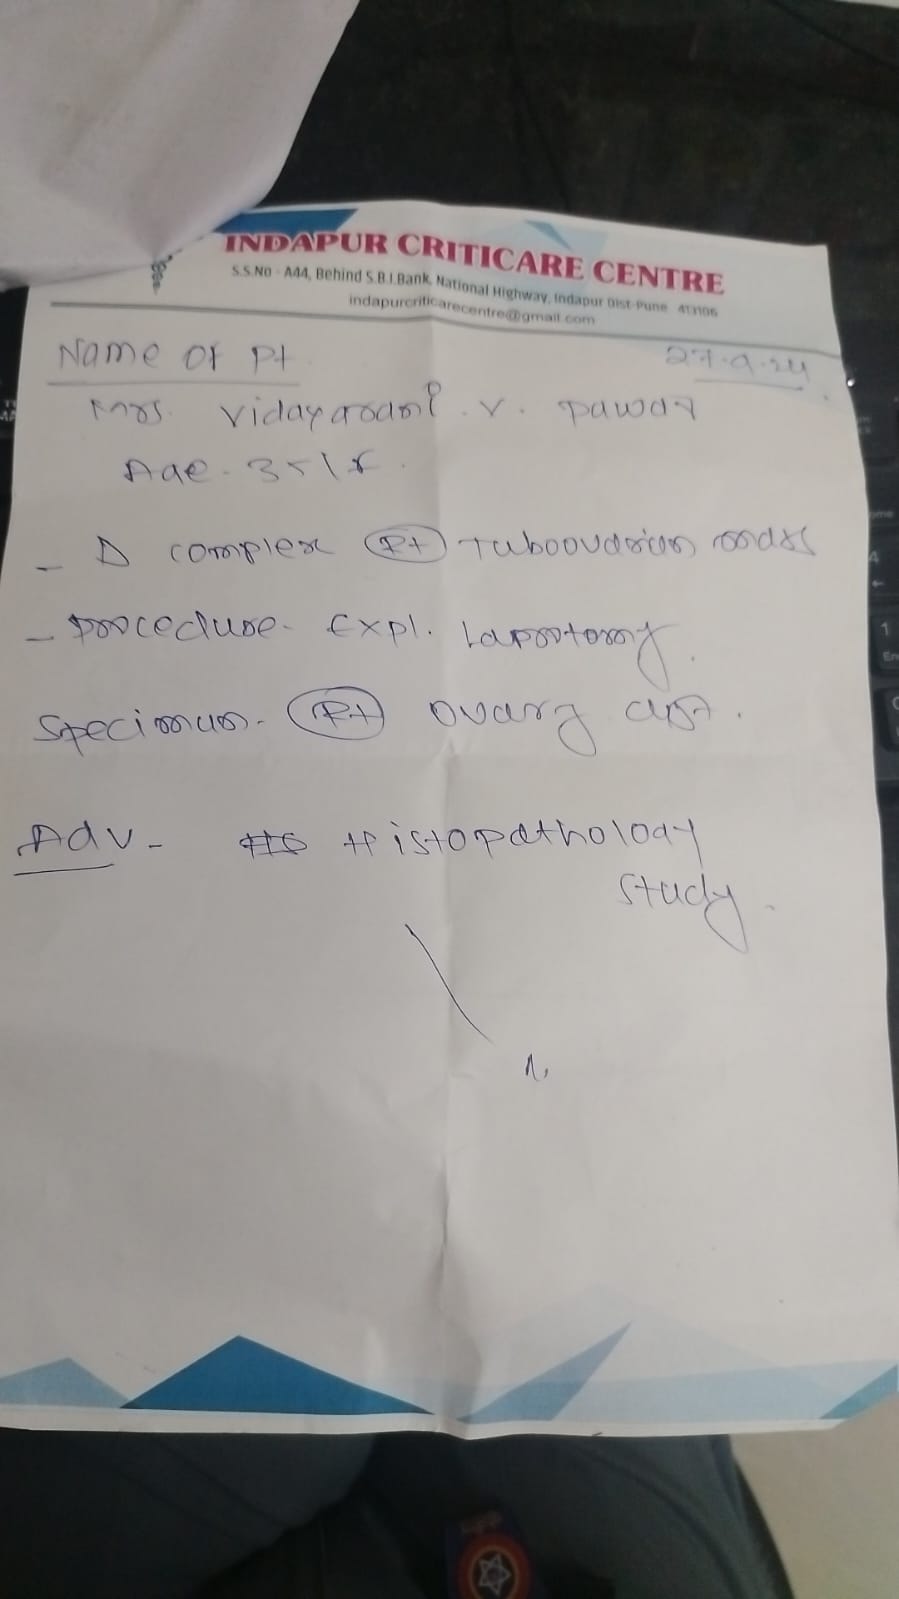 INDAPUR CRITICARE CENTRE
S.S.NO - A44, Behind S.B.I.Bank, National Highway, Indapur Dist-Pune 413106
indapurcriticarecentre@gmail.com
Name of Pt
27.9.24
Mrs. Vidayarani . V. Pawar
Age - 35/F.
- Δ complex Rt Tuboovarian mass
- Procedure - Expl. Laportomy.
Specimun - Rt ovary cyst.
Adv - Histopathology
study.